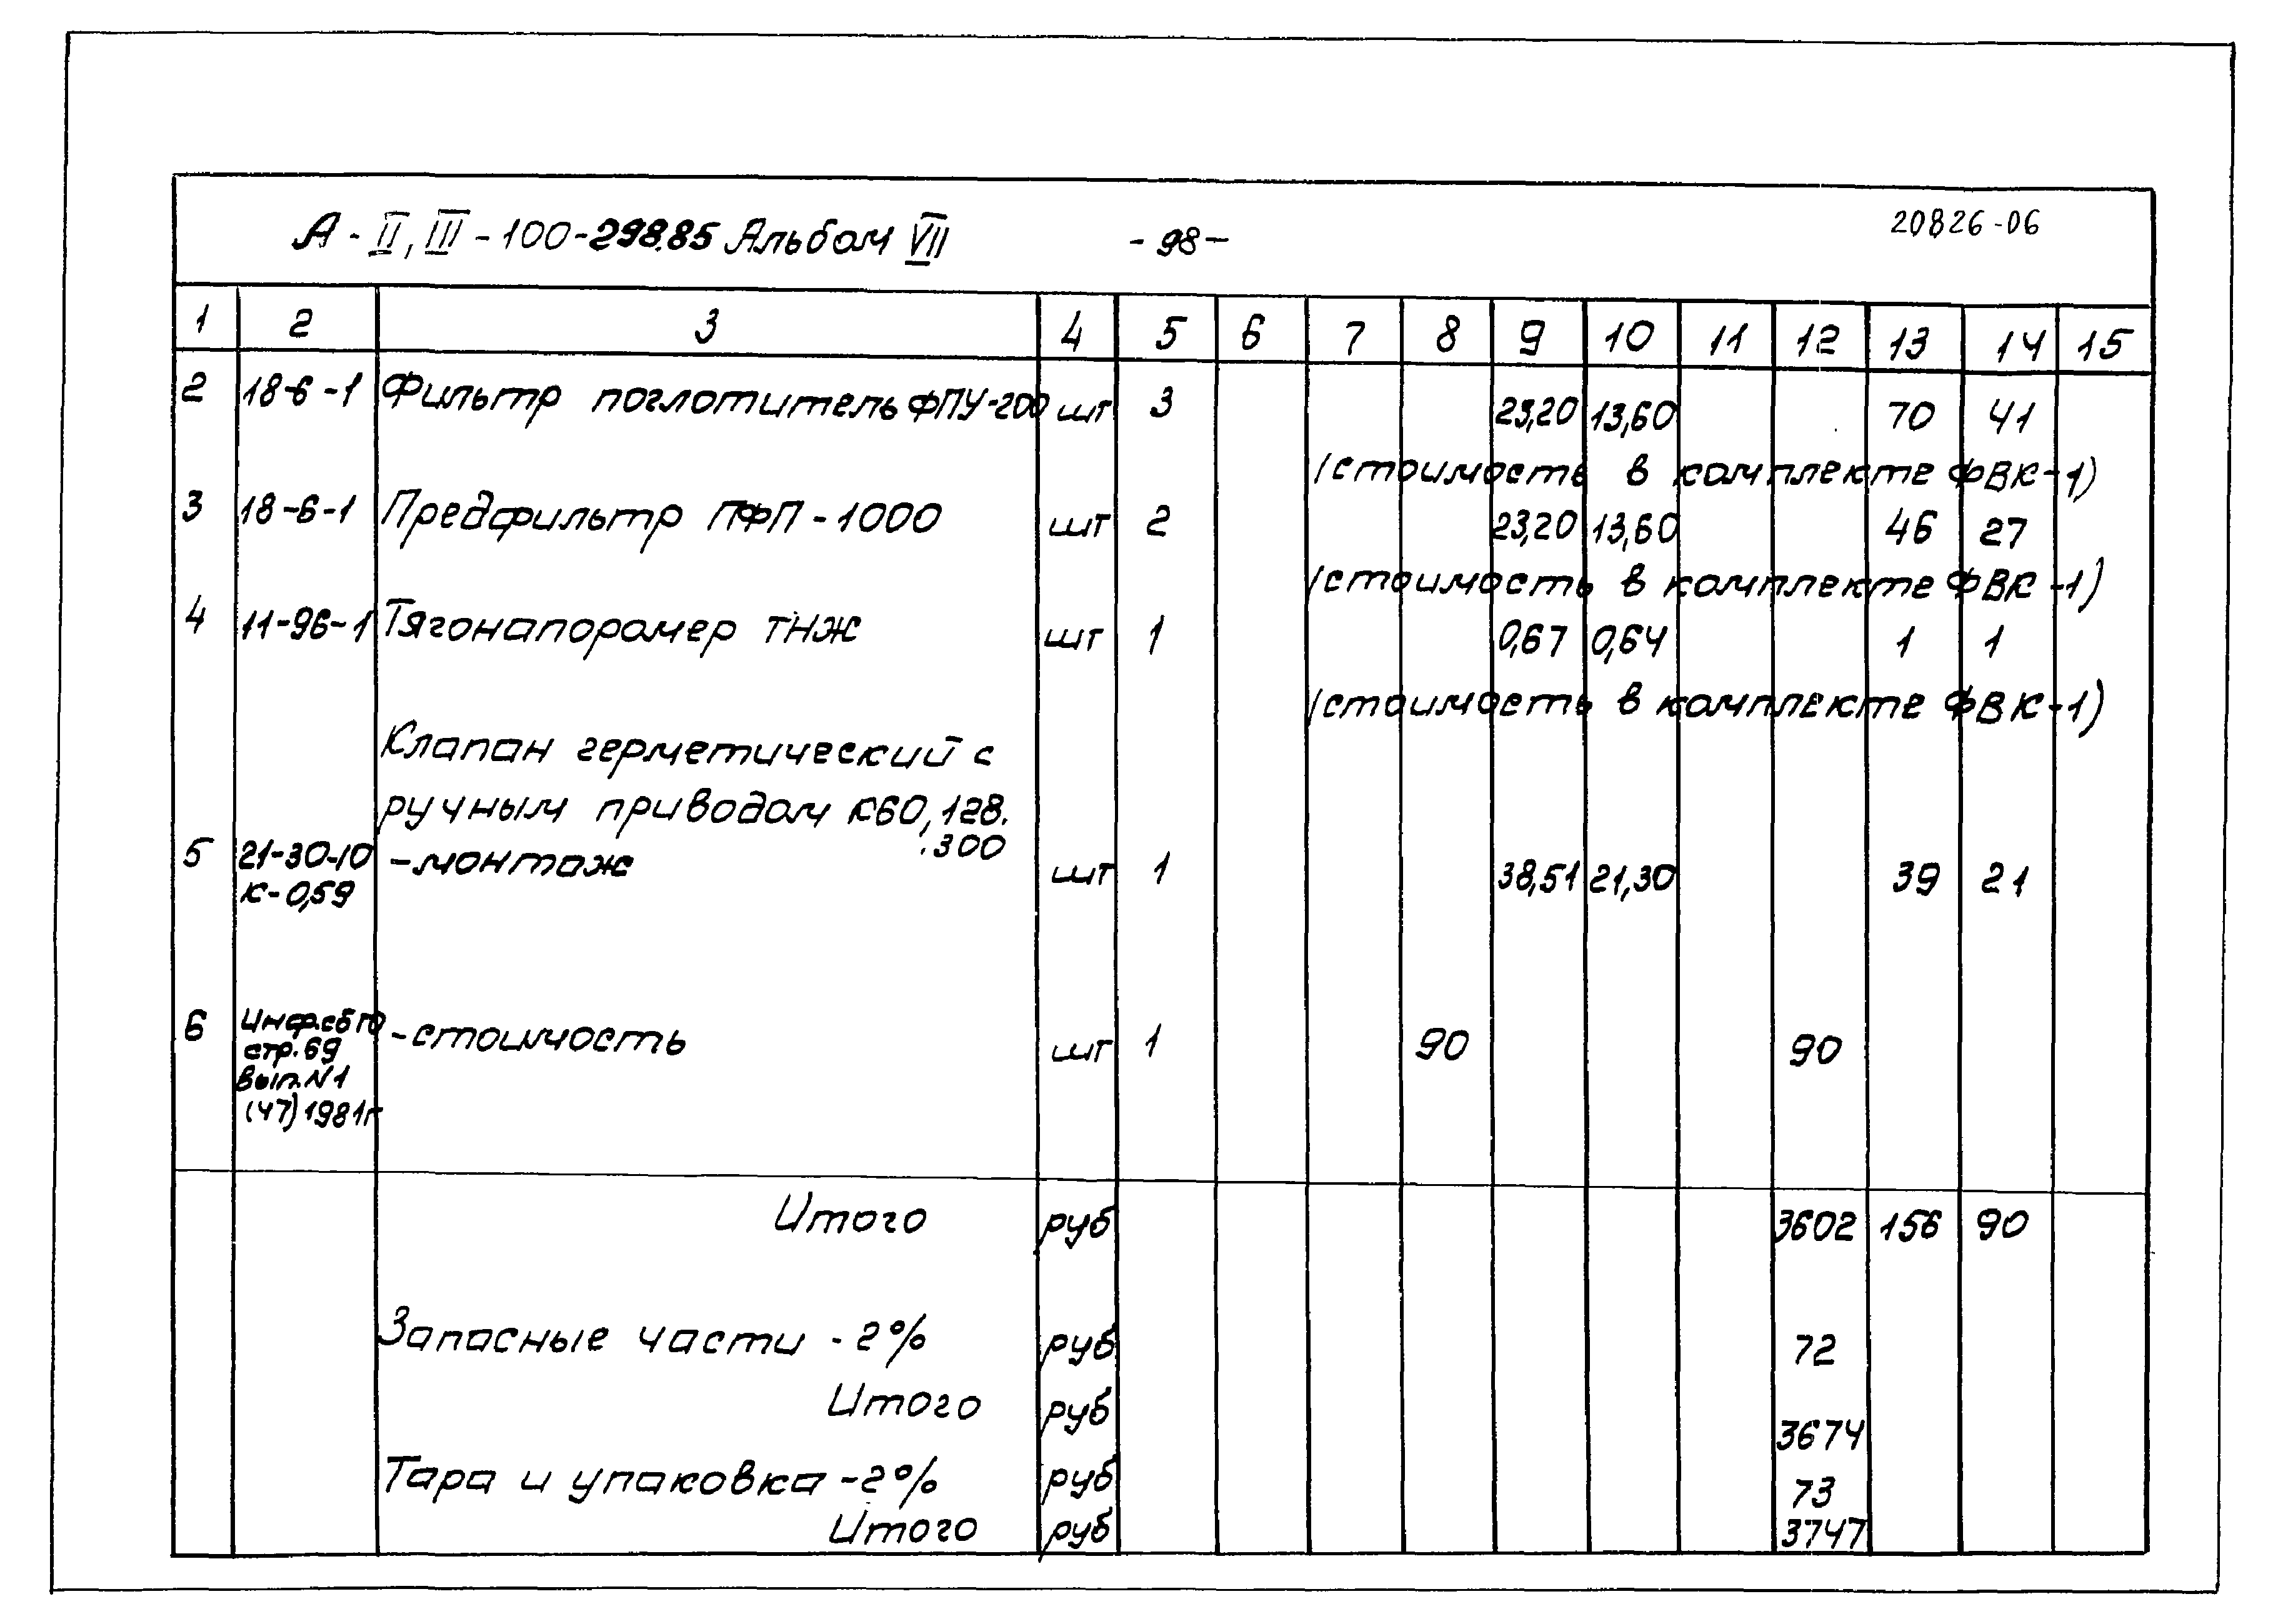 А-II, III-100-298.85 Альбом VII -98- 20826-06
1 2 3 4 5 6 7 8 9 10 11 12 13 14 15
2 18-6-1 Фильтр поглотитель ФПУ-200 шт 3 23,20 13,60 70 41
(стоимость в комплекте ФВК-1)
3 18-6-1 Предфильтр ПФП-1000 шт 2 23,20 13,60 46 27
(стоимость в комплекте ФВК-1)
4 11-96-1 Тягонапоромер ТНЖ шт 1 0,67 0,64 1 1
(стоимость в комплекте ФВК-1)
Клапан герметический с
ручным приводом К60,128.
.300
5 21-30-10 -монтаж шт 1 38,51 21,30 39 21
К-0,59
6 Инф.сб ГО -стоимость шт 1 90 90
стр.69
вып.N1
(47)1981г
Итого руб 3602 156 90
Запасные части -2% руб 72
Итого руб 3674
Тара и упаковка -2% руб 73
Итого руб 3747